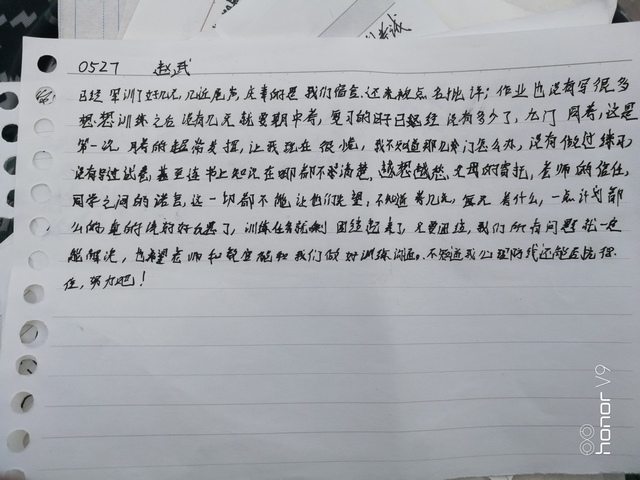 0527 赵武
已经军训了好几次,几近尾声,庆幸的是我们宿舍还未被点名批评;作业也没有写很多
想想训练之后没有几天就要期中考,复习的时已经没有多少了,九门周考,这是
第一次月考的超常发挥,让我现在很慌,我不知道那几门怎么办,没有做过练习
没有写过试卷,甚至连书上知识在哪都不弄清楚,越想越慌,父母的寄托,老师的信任,
同学之间的诺言,这一切都不能让他们失望,不知道考几天,每天考什么,一点计划都
么的,真的没有好玩了,训练任务就剩团结起来了,只要团结,我们所有问题就一定
能解决,也希望老师和我们做好训练沟通。不知道我心理防线还能否抗
住,努力吧!
诚
honor V9